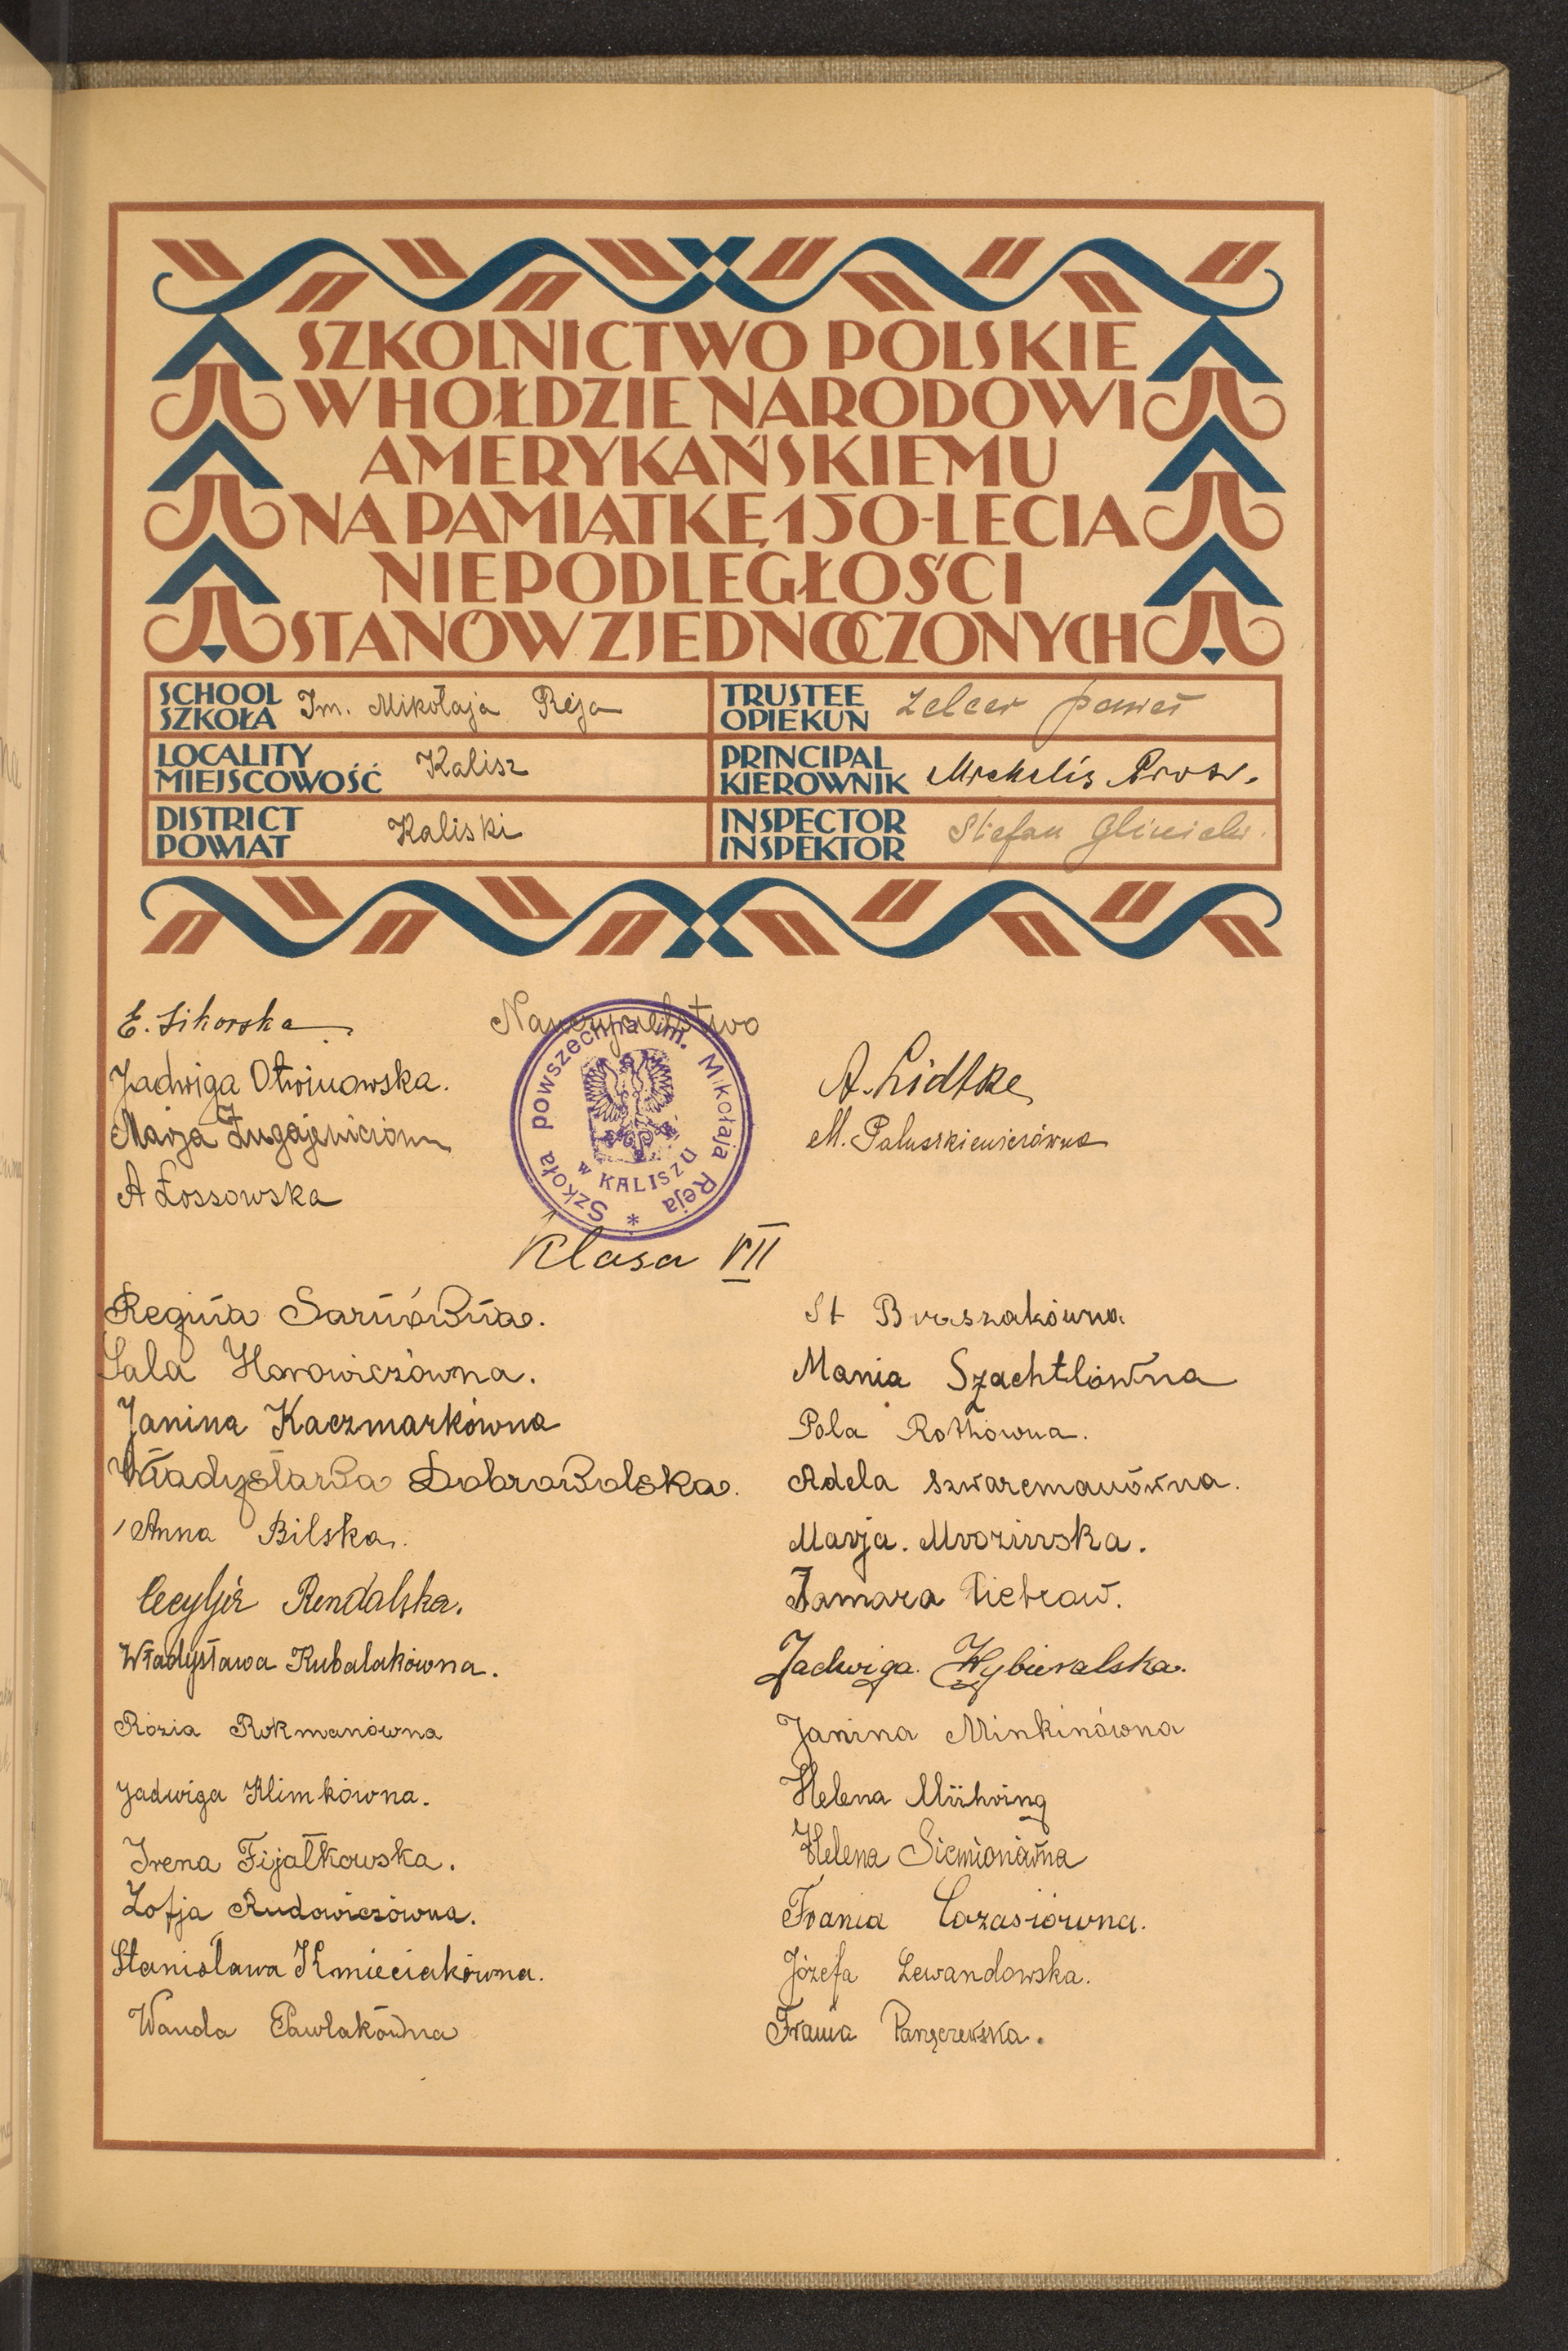 SZKOLNICTWO POLSKIE
W HOŁDZIE NARODOWI
AMERYKAŃSKIEMU
NA PAMIĄTKĘ 150-LECIA
NIEPODLEGŁOŚCI
STANÓW ZJEDNOCZONYCH
SCHOOL
SZKOŁA
Im. Mikołaja Reja
TRUSTEE
OPIEKUN
Paweł
LOCALITY
MIEJSCOWOŚĆ
Kalisz
PRINCIPAL
KIEROWNIK
Michelis
DISTRICT
POWIAT
Kaliski
INSPECTOR
INSPEKTOR
Stefan
Nauczycielstwo
E. Sikorska
Jadwiga Otwinowska.
Marja
A Łossowska
A. Lidtke
M. Paluszkiewiczówna
Szkoła powszechna im. Mikołaja Reja
w KALISZU
Klasa VII
Regina Sarnówna.
Sala Horowiczówna.
Janina Kaczmarkówna
Władysława Dobrowolska.
Anna Bilska.
Cecylja Rendalska.
Władysława Kubalakówna.
Rózia Rokmanówna
Jadwiga Klimkówna.
Irena Fijałkowska.
Zofja Rudowiczówna.
Stanisława Kmieciakówna.
Wanda Pawlakówna
St Braszakówna.
Mania Szachtlówna
Pola Rothówna.
Adela Szwarcmanówna.
Marja. Mrozińska.
Tamara Pietraw.
Jadwiga. Wybieralska.
Janina Minkinówna
Helena Mühring
Helena Siemionówna
Frania Łazasiówna.
Józefa Lewandowska.
Frania Panęczewska.